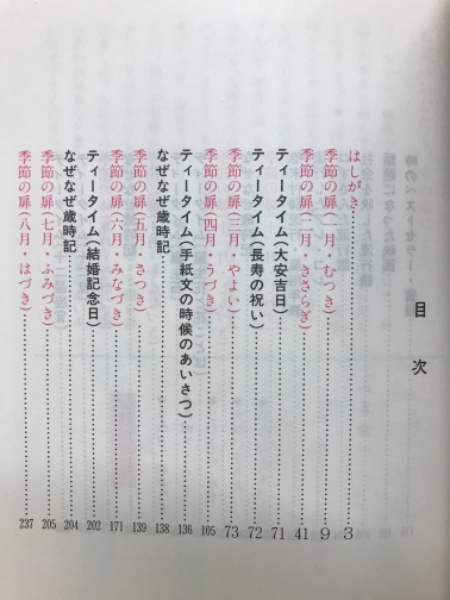 目次
はしがき……3
季節の扉(一月・むつき)……9
季節の扉(二月・きさらぎ)……41
ティータイム(大安吉日)……71
ティータイム(長寿の祝い)……72
季節の扉(三月・やよい)……73
季節の扉(四月・うづき)……105
ティータイム(手紙文の時候のあいさつ)……136
なぜなぜ歳時記……138
季節の扉(五月・さつき)……139
季節の扉(六月・みなづき)……171
ティータイム(結婚記念日)……202
なぜなぜ歳時記……204
季節の扉(七月・ふみづき)……205
季節の扉(八月・はづき)……237